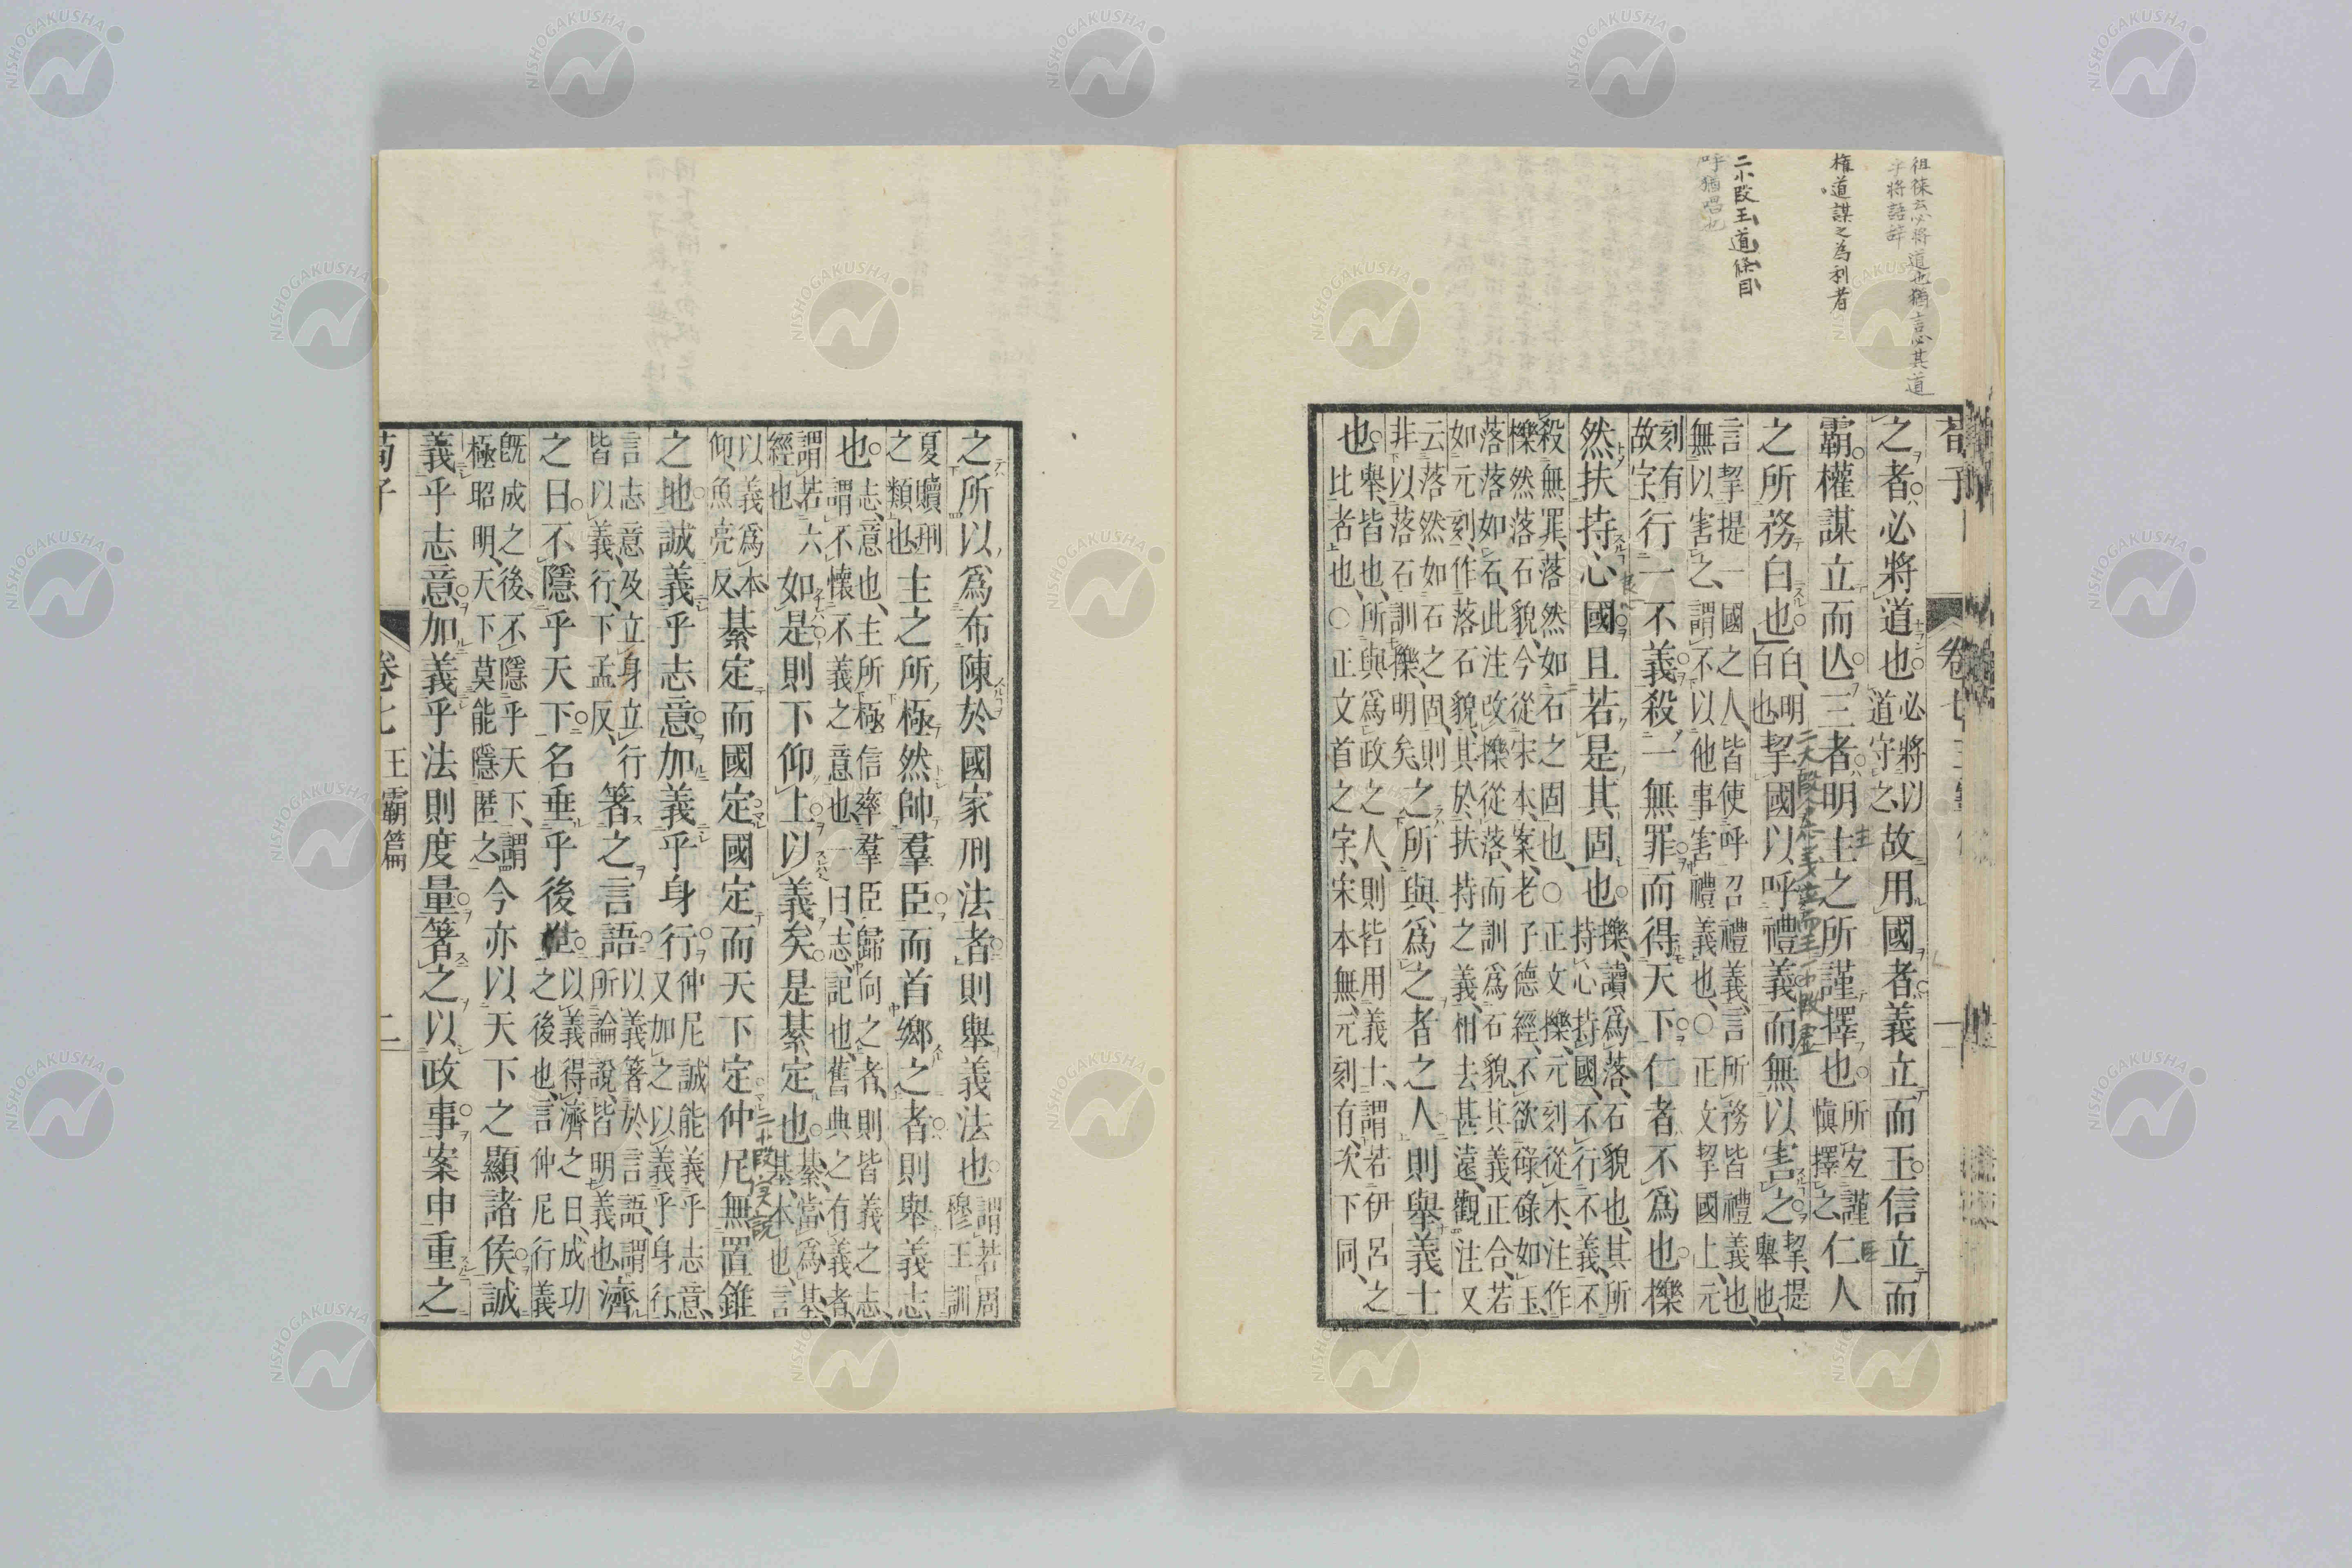 徂徠云必將道也猶言必其道
字將語辞
權道謀之為利者
二小段王道條目
呼猶唱也
荀子
卷七
之者必將道也必將以道守之故用國者義立而王信立而
霸權謀立而亾三者明主之所謹擇也所宜謹愼擇之仁人
之所務白也白明白也挈國以呼禮義而無以害之挈提舉也
言挈提一國之人皆使呼召禮義言所務皆禮義也
無以害之謂不以他事害禮義也○正文挈國上元
刻有故字行一不義殺一無罪而得天下仁者不爲也擽
然扶持心國且若是其固也擽讀爲落石貌也其所持心持國不行不義不
殺無罪落然如石之固也○正文擽元刻從木注作
櫟然落石貌今從宋本案老子德經不欲琭琭如玉
落落如石此注改擽從落而訓爲石貌其義正合若
如元刻作落石貌其於扶持之義相去甚遠觀注又
云落然如石之固則非以落石訓擽明矣之所與爲之者之人則舉義士
也舉皆也所與爲政之人則皆用義士謂若伊呂之
比者也○正文首之字宋本無元刻有次下同
之所以爲布陳於國家刑法者則舉義法也謂若周穆王訓
夏贖刑之類也主之所極然帥羣臣而首鄉之者則舉義志
也志意也主所極信率羣臣歸向之者則皆義之志
謂不懷不義之意也一曰志記也舊典之有義者
謂若六經也如是則下仰上以義矣是綦定也綦當爲基基本也言
以義爲本仰魚亮反綦定而國定國定而天下定仲尼無置錐
二小段僕説
之地誠義乎志意加義乎身行仲尼誠能義乎志意又加之以義乎身行
言志意及立身立行皆以義行下孟反箸之言語以義箸於言語謂所論說皆明義也濟
之日不隱乎天下名垂乎後世以義得濟之日成功之後也言仲尼行義
旣成之後不隱乎天下謂極昭明天下莫能隱匿之今亦以天下之顯諸侯誠
義乎志意加義乎法則度量箸之以政事案申重之
荀子
卷七 王霸篇
二